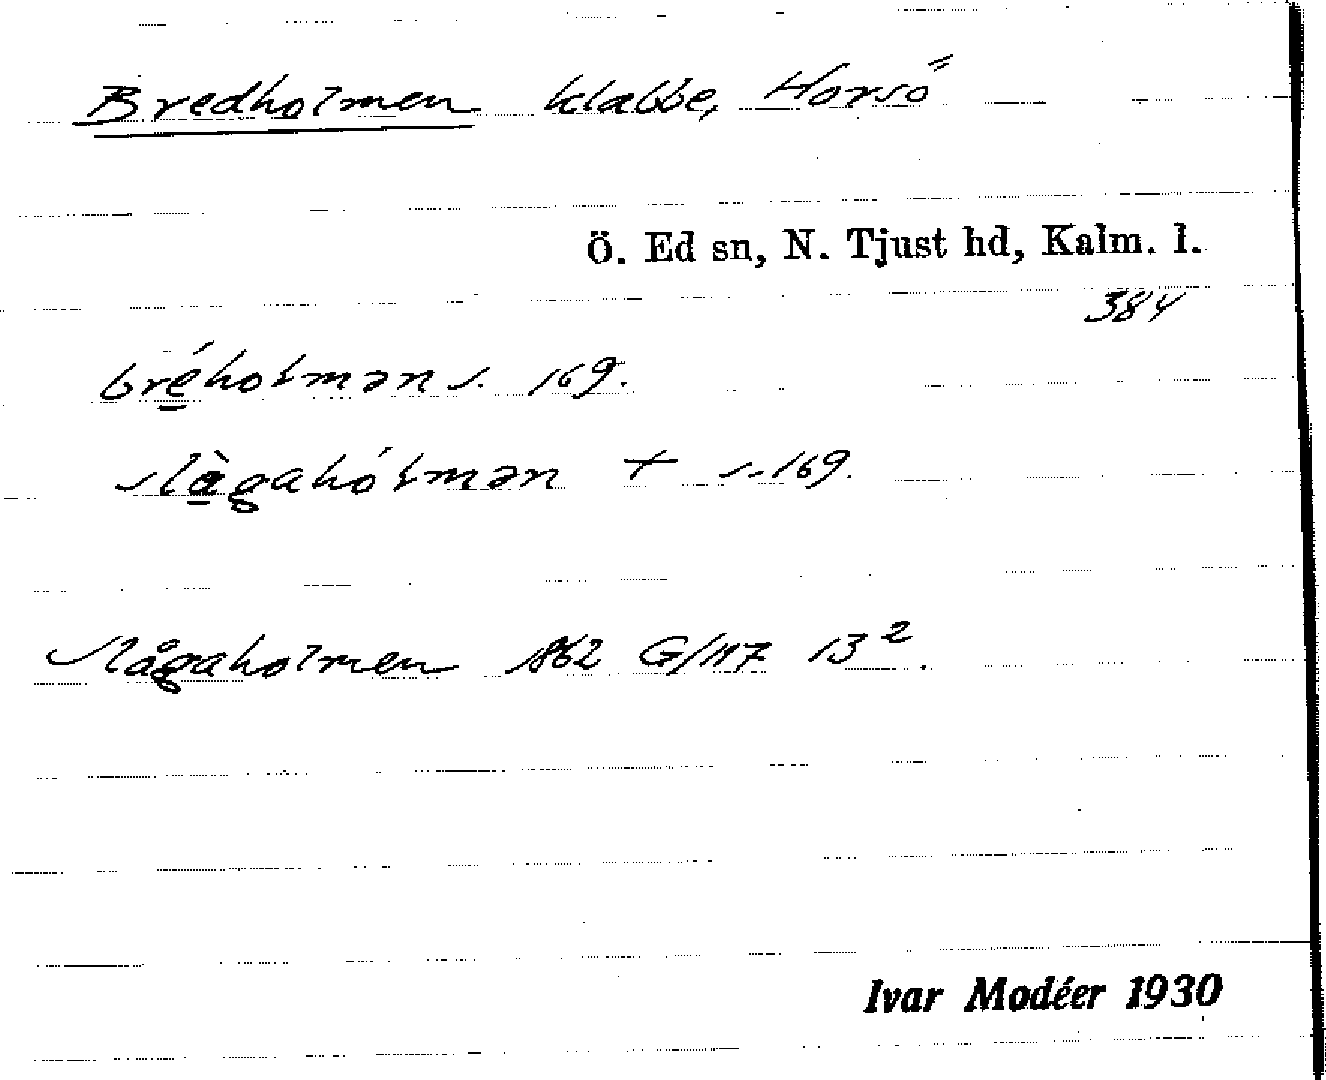 Bredholmen klabbe, Horsö
Ö. Ed sn, N. Tjust hd, Kalm. l.
384
bréholmən s. 169.
slàgahólmən + s. 169.
Slågaholmen 1862 G/117 13².
Ivar Modéer 1930